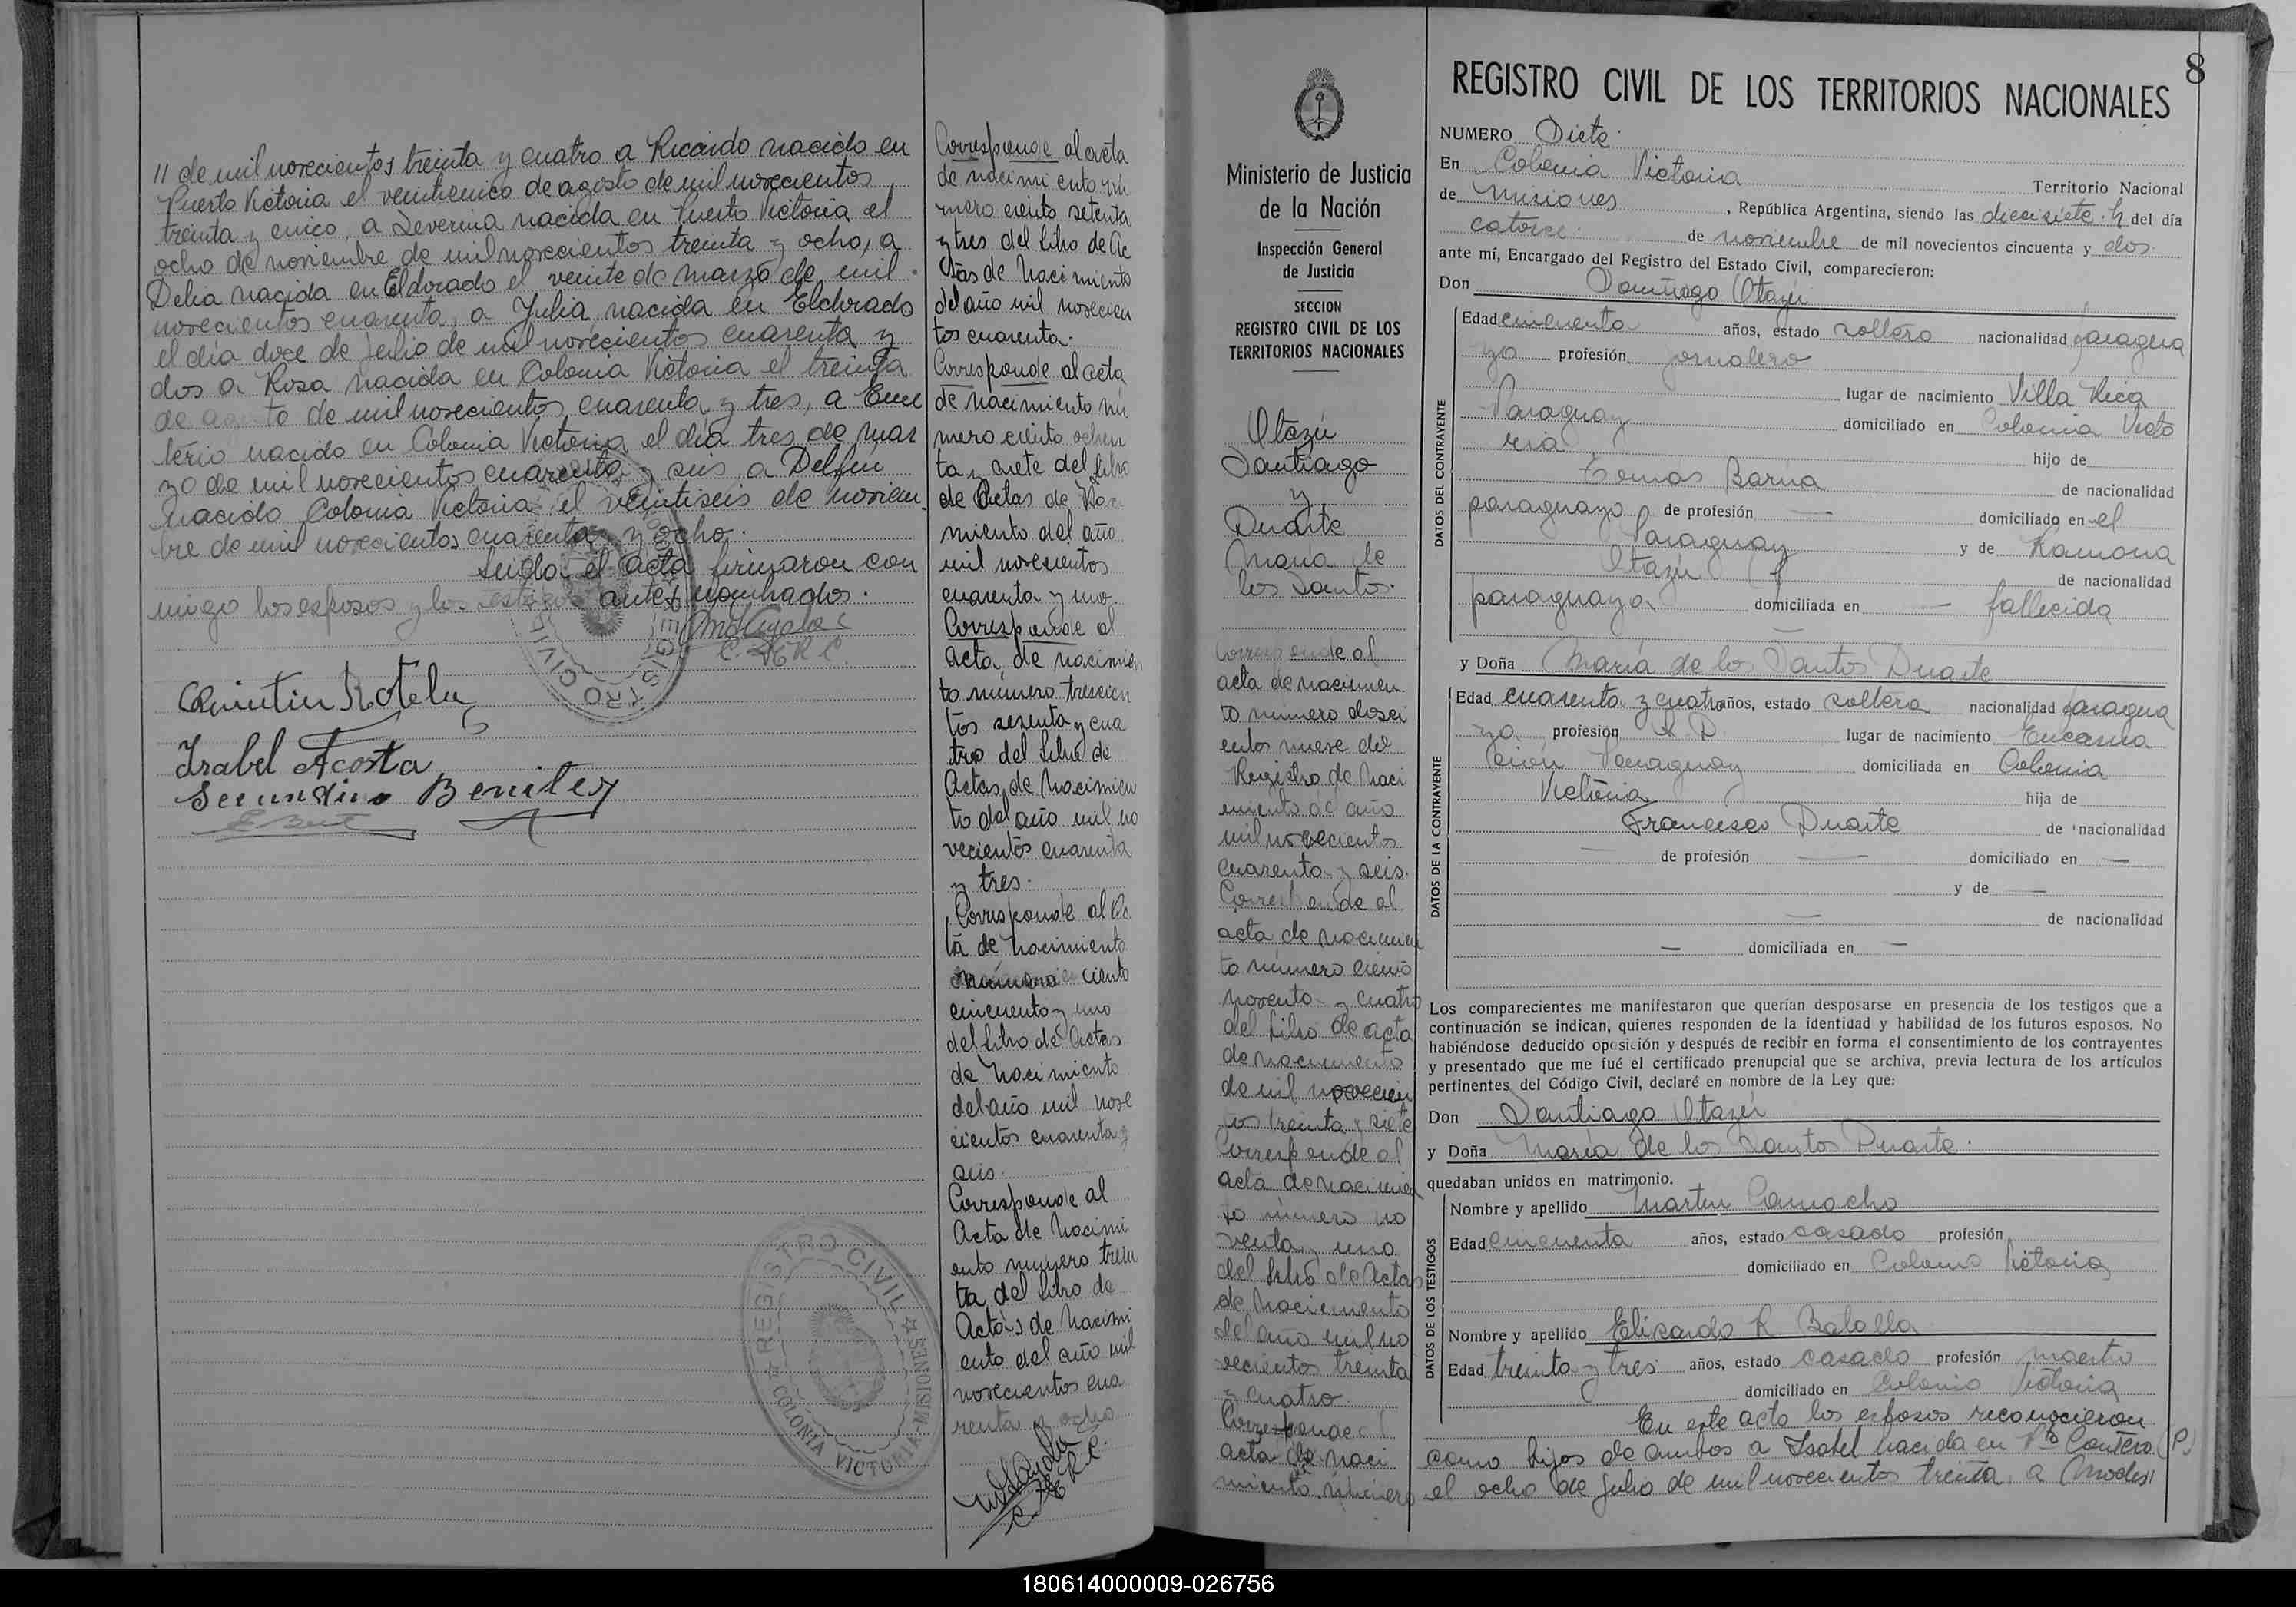 11 de mil novecientos treinta y cuatro a Ricardo nacido en
Puerto Victoria el veinticinco de agosto de mil novecientos
treinta y cinco, a Severina nacida en Puerto Victoria el
ocho de noviembre de mil novecientos treinta y ocho, a
Delia nacida en Eldorado el veinte de marzo de mil
novecientos cuarenta, a Julia nacida en Eldorado
el día doce de Julio de mil novecientos cuarenta y
dos a Rosa nacida en Colonia Victoria el treinta
de agosto de mil novecientos cuarenta y tres, a Eme
terio nacido en Colonia Victoria el día tres de mar
zo de mil novecientos cuarenta y seis, a Delfin
nacido Colonia Victoria el veintiseis de noviem
bre de mil novecientos cuarenta y ocho.
Leída el acta firmaron con
migo los esposos y los testigos antes nombrados.
E. R. C.
Quintin Rotela
Isabel Acosta
Secundino Benitez
REGISTRO CIVIL
Corresponde al acta
de nacimiento nú
mero ciento setenta
y tres del libro de Ac
tas de Nacimiento
del año mil novecien
tos cuarenta.
Corresponde al acta
de nacimiento nú
mero ciento ochen
ta y siete del libro
de Actas de Naci
miento del año
mil novecientos
cuarenta y uno
Corresponde al
acta de nacimien
to número trescien
tos sesenta y cua
tro del Libro de
Actas de Nacimien
to del año mil no
vecientos cuarenta
y tres.
Corresponde al Ac
ta de nacimiento
número ciento
cincuenta y uno
del libro de Actas
de Nacimiento
del año mil nove
cientos cuarenta y
seis.
Corresponde al
Acta de Nacimi
ento número trein
ta del Libro de
Actas de Nacimi
ento del año mil
novecientos cua
renta y ocho
E. R. C.
REGISTRO CIVIL
COLONIA VICTORIA-MISIONES
8
Ministerio de Justicia
de la Nación
Inspección General
de Justicia
SECCION
REGISTRO CIVIL DE LOS
TERRITORIOS NACIONALES
Otazú
Santiago
y
Duarte
María de
los Santos.
Corresponde al
acta de nacimien
to número dosci
entos nueve del
Registro de Naci
miento del año
mil novecientos
cuarenta y seis.
Corresponde al
acta de nacimien
to número ciento
noventa y cuatro
del Libro de acta
de nacimiento
de mil novecien
tos treinta y siete
Corresponde al
acta de nacimien
to número no
venta y uno
del libro de Actas
de Nacimiento
del año mil no
vecientos treinta
y cuatro
Corresponde al
acta de naci
miento número
REGISTRO CIVIL DE LOS TERRITORIOS NACIONALES
NUMERO Siete.
En Colonia Victoria Territorio Nacional
de Misiones, República Argentina, siendo las diecisiete h del día
catorce. de noviembre de mil novecientos cincuenta y dos.
ante mí, Encargado del Registro del Estado Civil, comparecieron:
Don Santiago Otazú
DATOS DEL CONTRAYENTE
Edad cincuenta años, estado soltero nacionalidad paragua
yo profesión jornalero
lugar de nacimiento Villa Rica
Paraguay domiciliado en Colonia Victo
ria hijo de
Tomás de nacionalidad
paraguayo de profesión — domiciliado en el
Paraguay y de Ramona
Otazú de nacionalidad
paraguaya domiciliada en — fallecida
y Doña María de los Santos Duarte
DATOS DE LA CONTRAYENTE
Edad cuarenta y cuatro años, estado soltera nacionalidad paragua
ya profesión Q. D. lugar de nacimiento Encarna
ción Paraguay domiciliada en Colonia
Victoria hija de
Francisco Duarte de nacionalidad
— de profesión — domiciliado en —
y de —
— de nacionalidad
— domiciliada en —
Los comparecientes me manifestaron que querían desposarse en presencia de los testigos que a
continuación se indican, quienes responden de la identidad y habilidad de los futuros esposos. No
habiéndose deducido oposición y después de recibir en forma el consentimiento de los contrayentes
y presentado que me fué el certificado prenupcial que se archiva, previa lectura de los artículos
pertinentes del Código Civil, declaré en nombre de la Ley que:
Don Santiago Otazú
y Doña María de los Santos Duarte.
quedaban unidos en matrimonio.
DATOS DE LOS TESTIGOS
Nombre y apellido Martin Camacho
Edad cincuenta años, estado casado profesión
domiciliado en Colonia Victoria
Nombre y apellido Elisardo R. Balalla
Edad treinta y tres años, estado casado profesión maestro
domiciliado en Colonia Victoria
En este acto los esposos reconocieron
como hijos de ambos a Isabel nacida en Pto (P)
el ocho de julio de mil novecientos treinta, a Modes
180614000009-026756